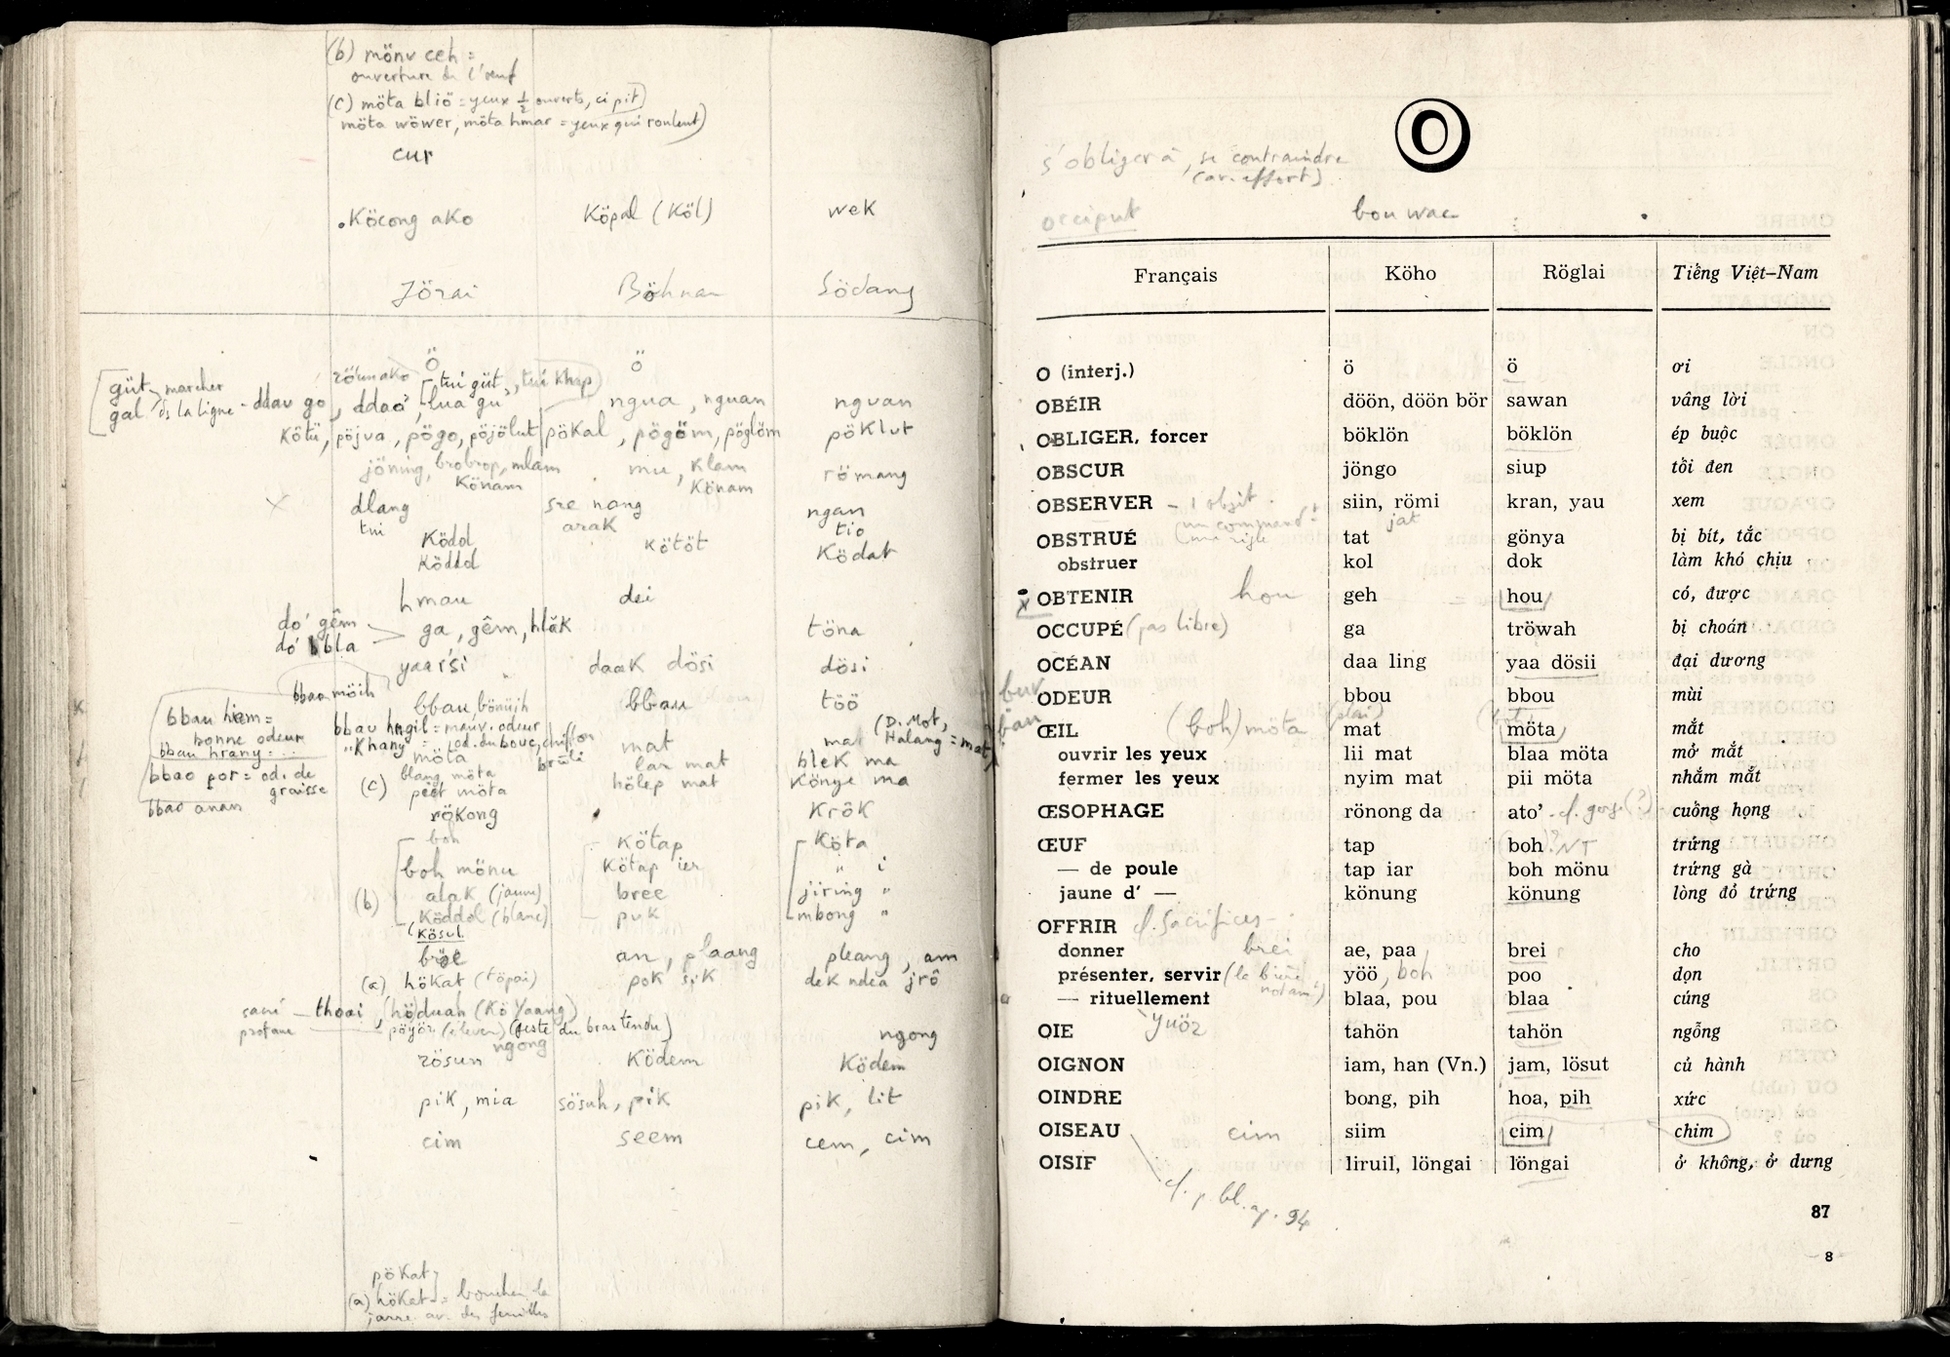 (b) mönu ceh =
ouverture de l'œuf
(c) möta bliö = yeux ½ ouverts,
möta wöwer, möta hmar = yeux qui roulent)
cur
Köcong ako Köpal (Köl) wek
Jörai Böhnar Södang
ö ö
röunako tui güt, tui khap
güt marcher
gal ds la ligne - ddau go, ddao', lua gu' ngua, nguan nguan
Kötü, pöjua, pögo, pöjölut pökal, pögöm, pöglöm pöklut
jöning, brobrop, mlam mu, klam römang
Könam Könam
dlang sre nang ngan
tui arak tio
Ködol kötöt Ködat
Köddol
hmau dei
do' gêm
do' bla ga, gêm, hlăk töna
yaarsi daak dösi dösi
bbao möih bbau, bönüih bbau töö
bbau hiem =
bonne odeur
bbau hrany = ...
bbau hngil = mauv. odeur
"Khany" = od. du bouc, chiffon brûlé
(D. Mot, Halang = mat)
möta mat ma
bbao por = od. de graisse
bbao anan
(c) blang möta lar mat blek ma
pĕĕt möta hölep mat könye ma
rökong Krôk
boh kötap Köta
boh mönu Kötap ier " i
(b) alak (jaune) bree jiring "
Köddol (blanc) puk mbong "
(Kösul
bröe an, plaang pleang, am
(a) hökat (töpai) pok sik dek ndea jrô
sacré — thoai, (hö)duah (Kö Yaang)
profane — pöyör (élever) (geste du bras tendu)
ngong ngong
rösun Ködem Ködem
pik, mia sösuh, pik pik, lit
cim seem cem, cim
pökat
(a) hökat = boucher la
jarre av. des feuilles
O
s'obliger à, se contraindre
(av. effort)
occiput bou wac
Français Köho Röglai Tiếng Việt-Nam
O (interj.) ö ö ơi
OBÉIR döön, döön bör sawan vâng lời
OBLIGER, forcer böklön böklön ép buộc
OBSCUR jöngo siup tối đen
OBSERVER - 1 objet siin, römi kran, yau xem
jat
OBSTRUÉ tat gönya bị bít, tắc
obstruer kol dok làm khó chịu
x OBTENIR hou geh hou có, được
OCCUPÉ (pas libre) ga tröwah bị choán
OCÉAN daa ling yaa dösii đại dương
ODEUR bbou bbou mùi
ŒIL (boh) möta mat möta mắt
ouvrir les yeux lii mat blaa möta mở mắt
fermer les yeux nyim mat pii möta nhắm mắt
ŒSOPHAGE rönong da ato' cf. gorge (?) cuống họng
ŒUF tap boh ? NT trứng
— de poule tap iar boh mönu trứng gà
jaune d' — könung könung lòng đỏ trứng
OFFRIR cf. Sacrifices
donner brei ae, paa brei cho
présenter, servir (la bière notamt) yöö, boh poo dọn
— rituellement blaa, pou blaa cúng
yuöz
OIE tahön tahön ngỗng
OIGNON iam, han (Vn.) jam, lösut củ hành
OINDRE bong, pih hoa, pih xức
OISEAU cim siim cim chim
OISIF liruil, löngai löngai ở không, ở dưng
cf. p. bl. ap. 94
87
8